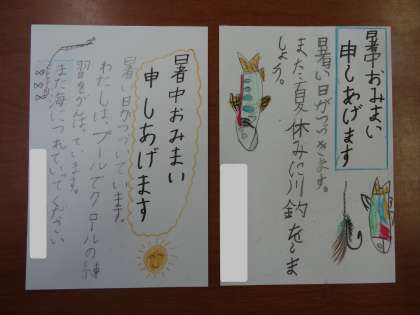 暑中おみまい
申しあげます
暑い日がつづいています。
わたしは、プールでクロールの練
習をがんばっています。
また海につれていってください
暑中おみまい
申しあげます
暑い日がつづきます。
また夏休みに川釣をしま
しょう。